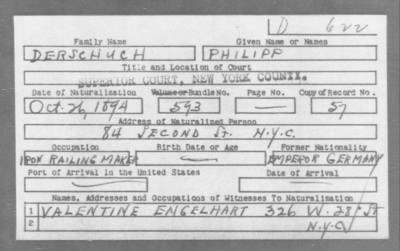 D 622
Family Name Given Name or Names
DERSCHUCH PHILIPP
Title and Location of Court
SUPERIOR COURT, NEW YORK COUNTY.
Date of Naturalization Volume or Bundle No. Page No. Copy of Record No.
Oct. 26, 1894 593 — 57
Address of Naturalized Person
84 SECOND St. N.Y.C.
Occupation Birth Date or Age Former Nationality
IRON RAILING MAKER — EMPEROR GERMANY
Port of Arrival in the United States Date of Arrival
— —
Names, Addresses and Occupations of Witnesses To Naturalization
1 VALENTINE ENGELHART 326 W. 28th St
2 N.Y.C.